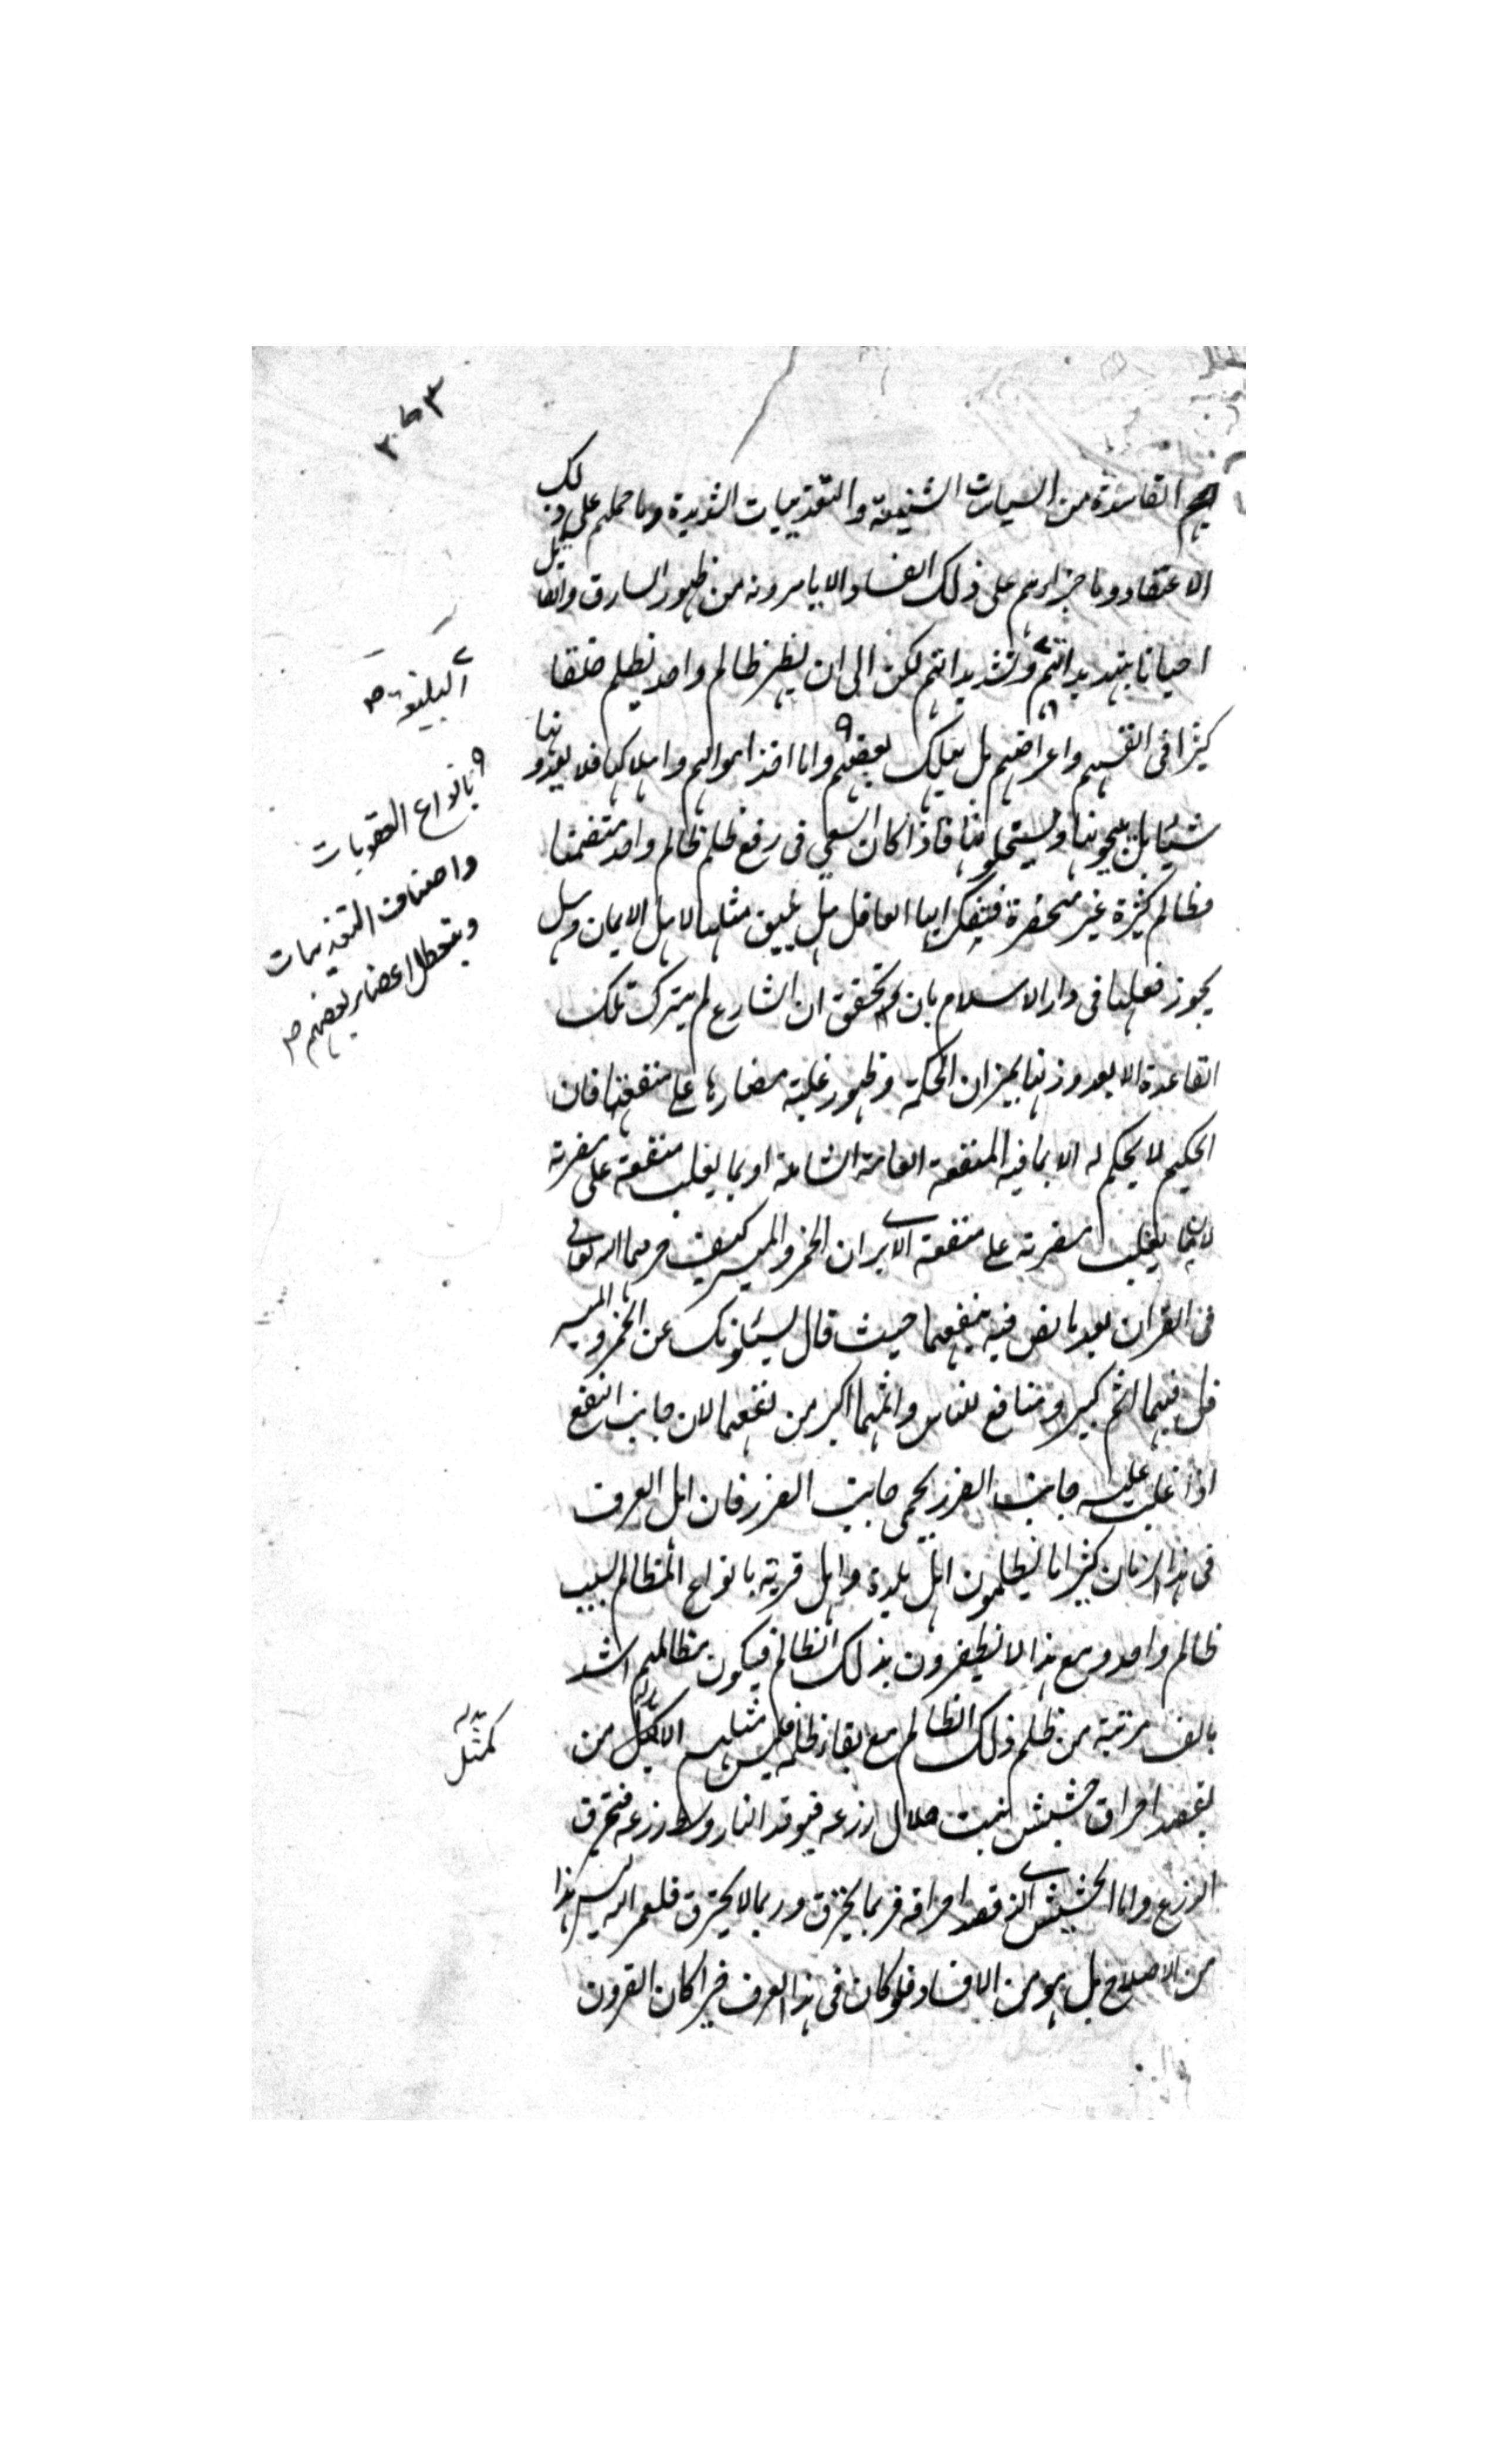 الفاسدة من السياسات الشنيعة والتعذيبات الشديدة وما حملهم على ذلك
الاعتقاد وما جراءهم على ذلك الفساد الا ما يرونه من ظهور السارق والقاتل
احيانا بتهديداتهم وتشديداتهم لكن الى ان يظهر ظالم واحد يظلم خلقا
كثيرا في انفسهم واعراضهم بل يهلك بعضهم واما اخذ اموالهم واملاكها فلا يعدونها
شيئا بل يبيحونها ويستحلونها فاذا كان السعي في رفع ظلم ظالم واحد متضمنا
مظالم كثيرة غير منحصرة فتفكر ايها العاقل هل يليق مثلها لاهل الايمان وهل
يجوز فعلها في دار الاسلام بان تحقق ان الشارع لم يترك تلك
القاعدة الا بعد وزنها بميزان الحكمة وظهور غلبة مضارها على منفعتها فان
الحكيم لا يحكم له الا بما فيه المنفعة العامة الشاملة او بما يغلب منفعته على مضرته
لا بما يغلب مضرته على منفعته الا يرى ان الخمر والميسر كيف حرمهما الله تعالى
في القران بعد ما نص فيه بنفعهما حيث قال يسئلونك عن الخمر والميسر
قل فيهما اثم كبير ومنافع للناس واثمهما اكبر من نفعهما لان جانب النفع
اذا غلب عليه جانب الضرر يحمى جانب الضرر فان اهل العرف
في هذا الزمان كثيرا ما يظلمون اهل بلدة واهل قرية بانواع المظالم بسبب
ظالم واحد ومع هذا لا يظفرون بذلك الظالم فيكون مظالمهم اشد
بالف مرتبة من ظلم ذلك الظالم مع بقاء ظلمه فليس مثلهم الا من
يقصد احراق حشيش نبت خلال زرعه فيوقد النار وسط زرعه فتحرق
الزرع واما الحشيش الذي قصد احراقه فربما يحترق وربما لا يحترق فلعمر الله ليس هذا
من الاصلاح بل هو من الافساد فلو كان في هذا العرف خيرا كان القرون
البليغة صح
بانواع العقوبات
واصناف التعذيبات
وبتعطل اعضاء بعضهم صح
كمثل